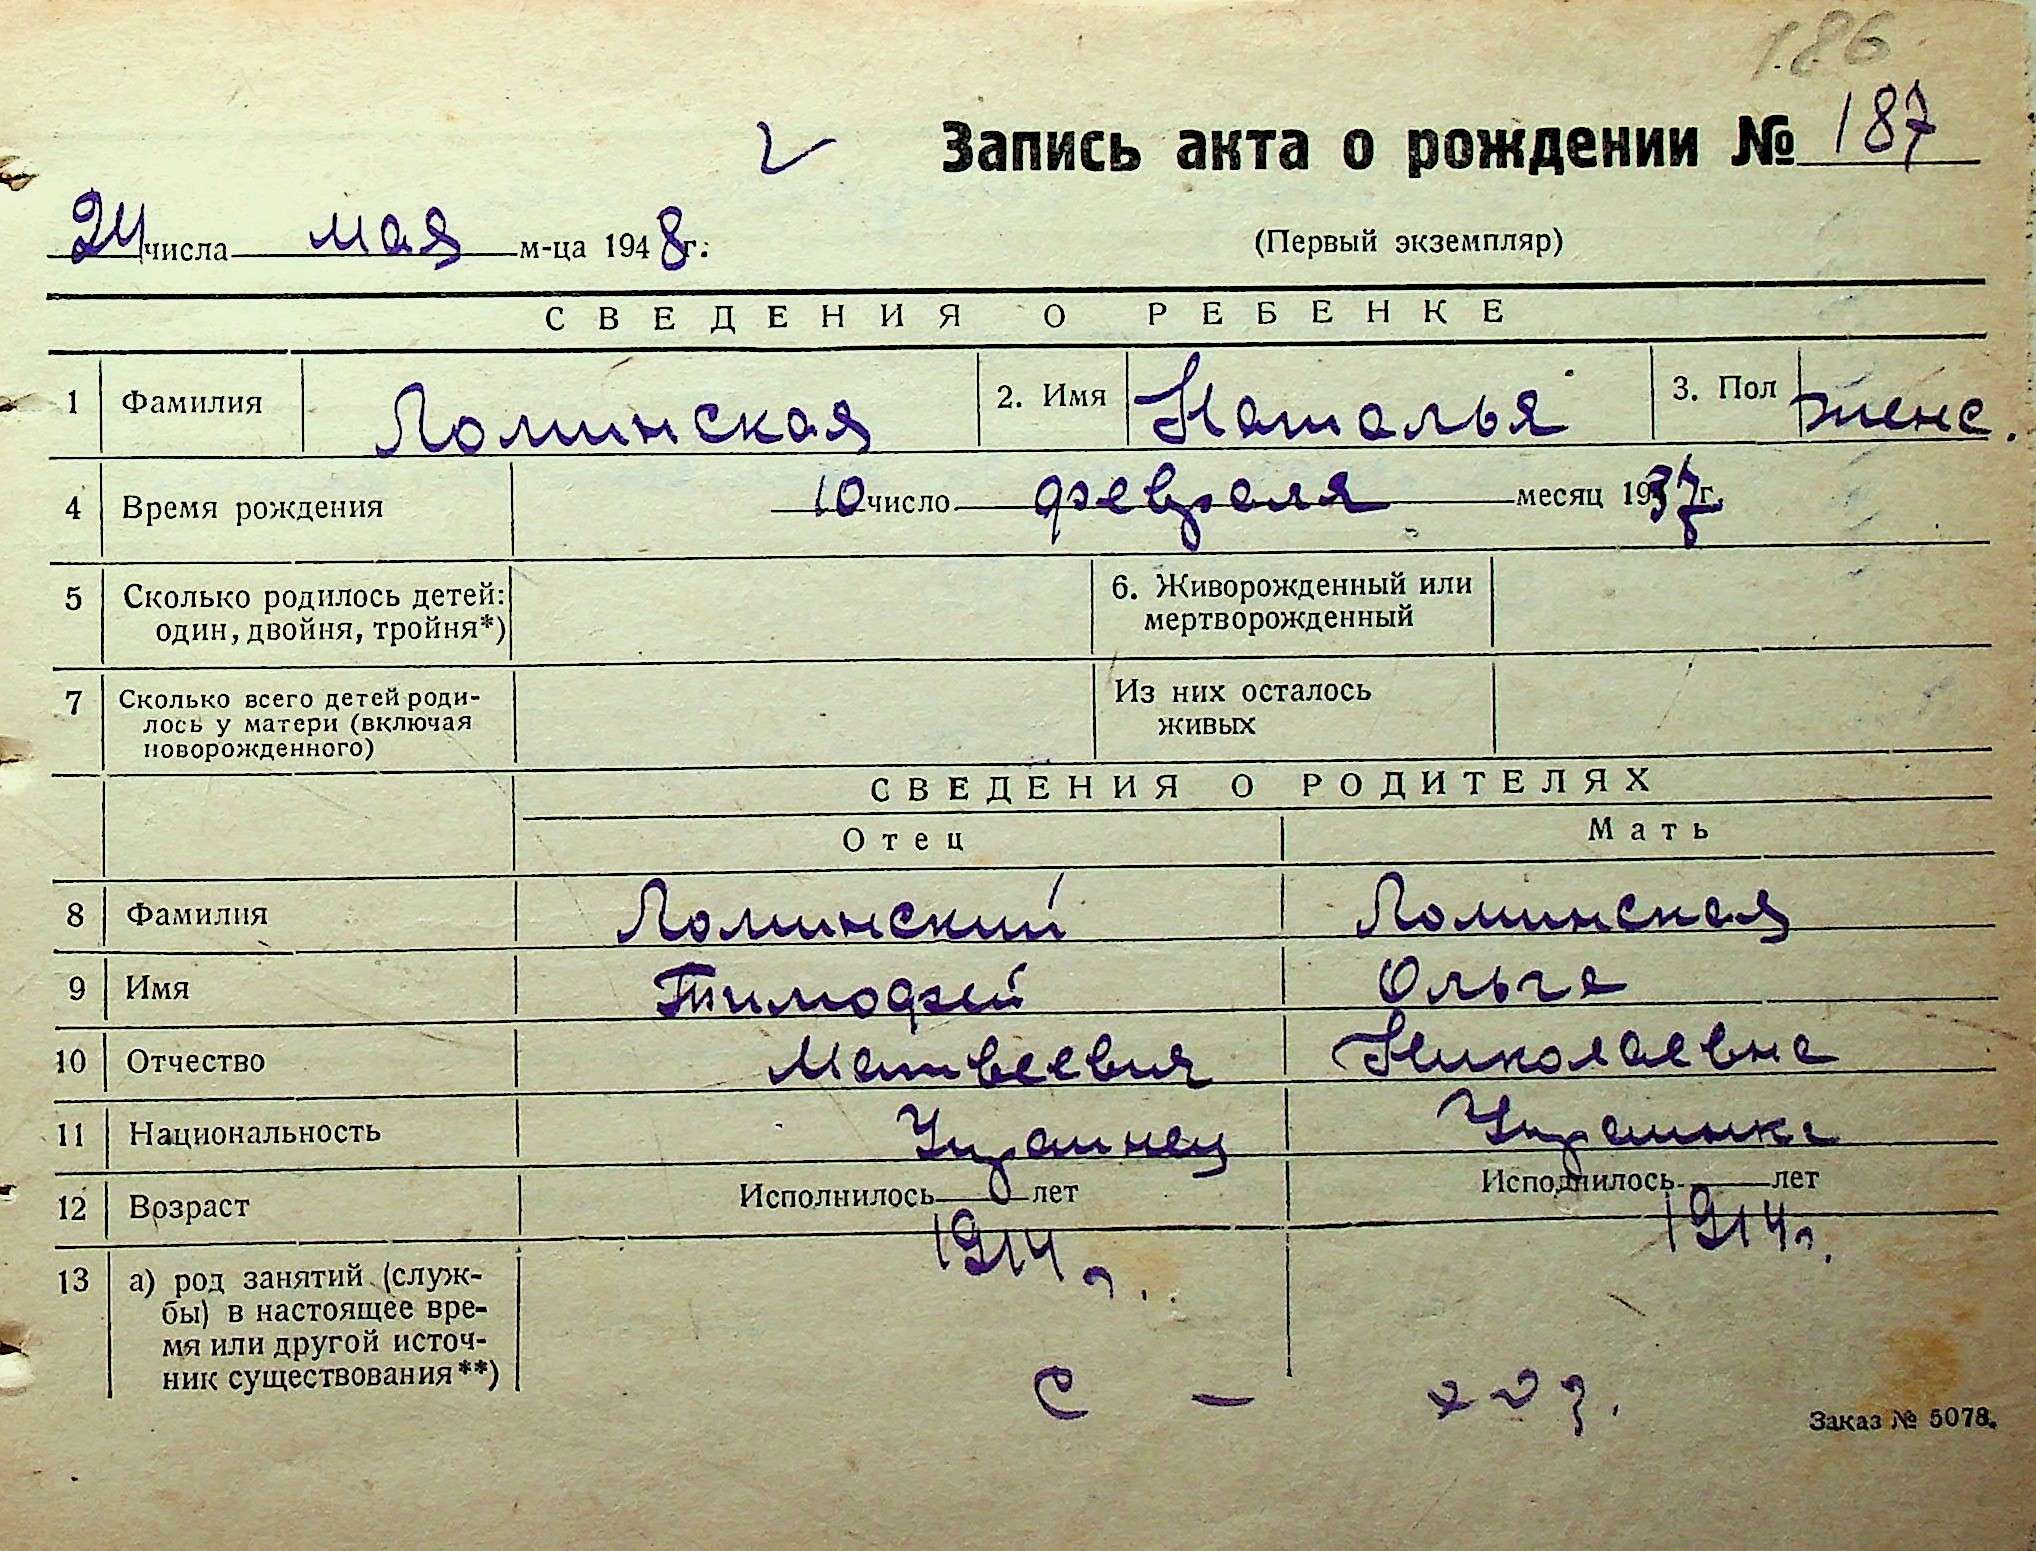 186
Запись акта о рождении № 187
24 числа мая м-ца 1948 г.
(Первый экземпляр)
СВЕДЕНИЯ О РЕБЕНКЕ
1 Фамилия Ломинская 2. Имя Наталья 3. Пол женс.
4 Время рождения 10 число февраля месяц 1937 г.
5 Сколько родилось детей: 6. Живорожденный или
один, двойня, тройня*) мертворожденный
7 Сколько всего детей роди- Из них осталось
лось у матери (включая живых
новорожденного)
СВЕДЕНИЯ О РОДИТЕЛЯХ
Отец Мать
8 Фамилия Ломинский Ломинская
9 Имя Тимофей Ольга
10 Отчество Матвеевич Николаевна
11 Национальность Украинец Украинка
12 Возраст Исполнилось лет Исполнилось лет
1914 г. 1914 г.
13 а) род занятий (служ-
бы) в настоящее вре-
мя или другой источ-
ник существования**)
с - хоз.
Заказ № 5078.